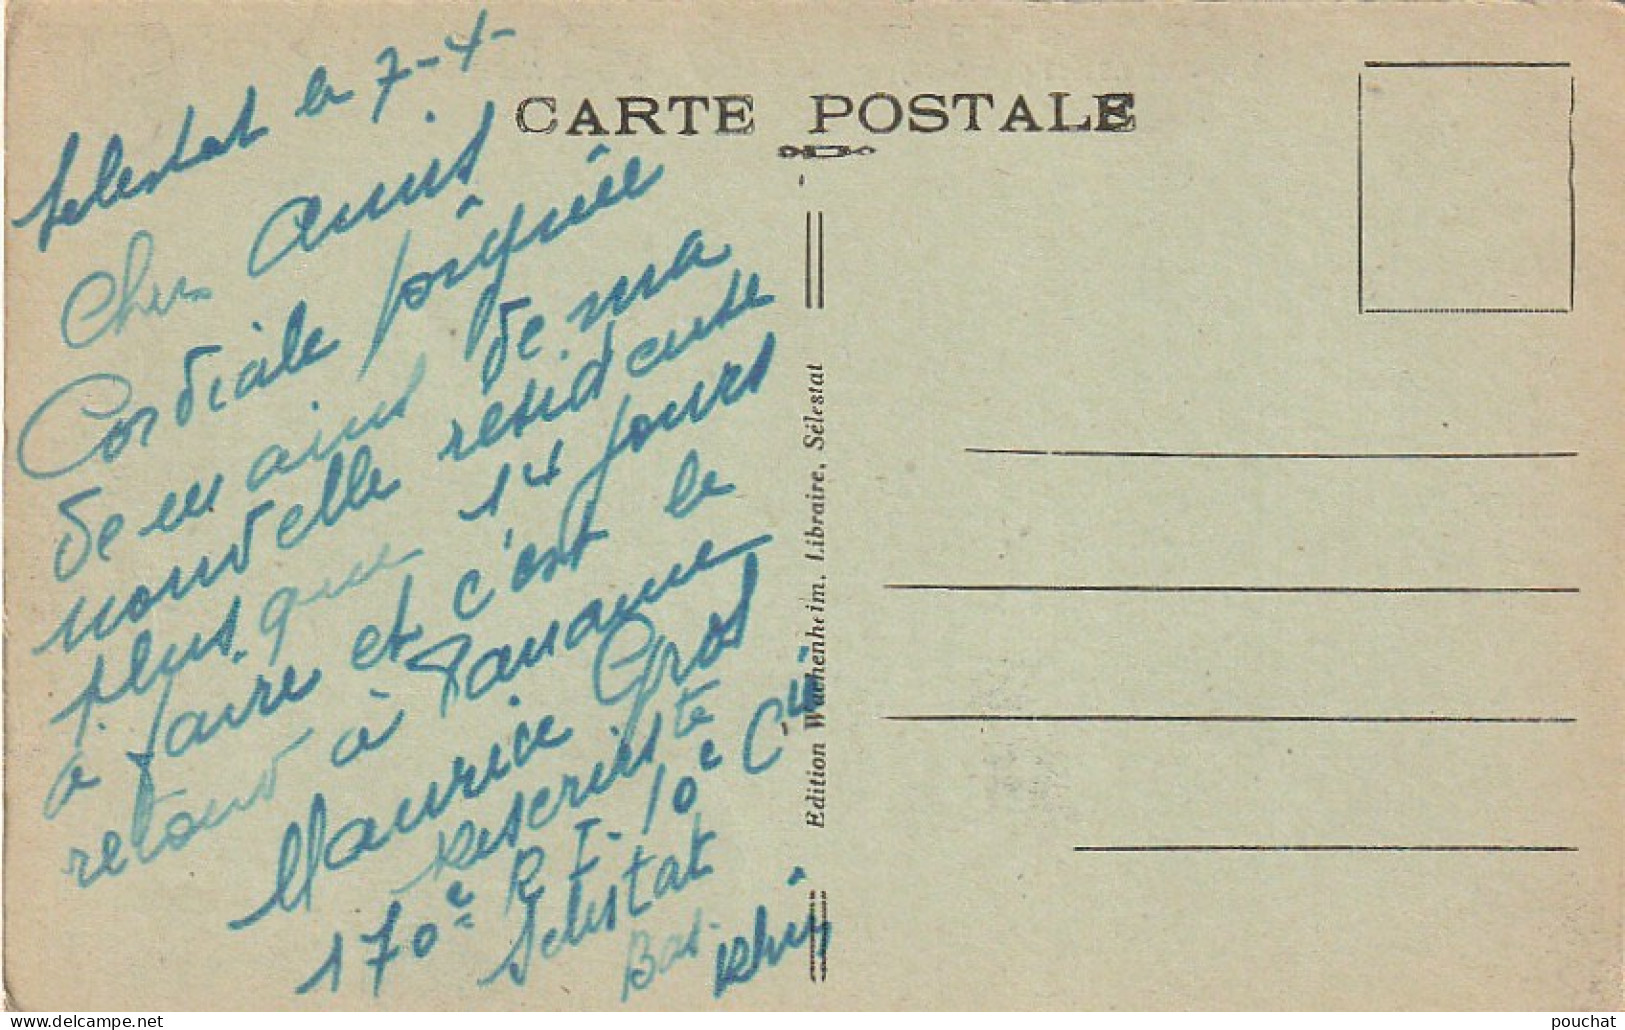 Selestat le 7-4-
Chers Amis
Cordiale poignée
de mains de ma
nouvelle residente
plus que 14 jours
à faire et c'est le
retour à Paname
Maurice Gros
reserviste
170e R I- 10e Cie
Selestat
Bas- Rhin
CARTE POSTALE
Edition Wachenheim, Libraire, Sélestat
pouchat